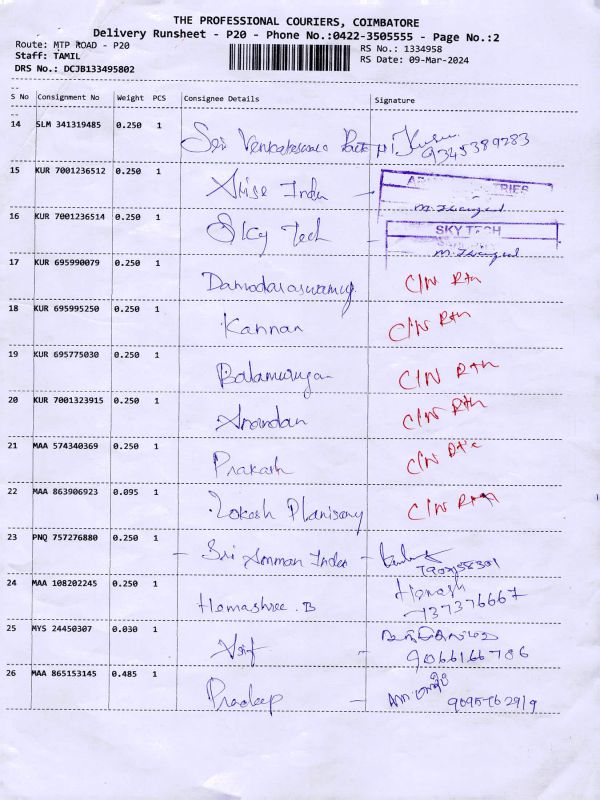 THE PROFESSIONAL COURIERS, COIMBATORE
Delivery Runsheet - P20 - Phone No.:0422-3505555 - Page No.:2
Route: MTP ROAD - P20 RS No.: 1334958
Staff: TAMIL RS Date: 09-Mar-2024
DRS No.: DCJB133495802
S No Consignment No Weight PCS Consignee Details Signature
14 SLM 341319485 0.250 1 Sri Venkateswara
9345389283
15 KUR 7001236512 0.250 1 Arise Indu -
16 KUR 7001236514 0.250 1 Sky Tech - SKY TECH
17 KUR 695990079 0.250 1 Damodaraswamy C/N Rtn
18 KUR 695995250 0.250 1 Kannan C/N Rtn
19 KUR 695775030 0.250 1 Balamurugan C/N Rtn
20 KUR 7001323915 0.250 1 Anandan C/N Rtn
21 MAA 574340369 0.250 1 Prakash C/N Rtn
22 MAA 863906923 0.095 1 Lokesh Planisamy C/N Rtn
23 PNQ 757276880 0.250 1 - Sri Amman Indu -
24 MAA 108202245 0.250 1 Hemashree.B
737376667
25 MYS 24450307 0.030 1 Asif -
9066166786
26 MAA 865153145 0.485 1 Pradeep -